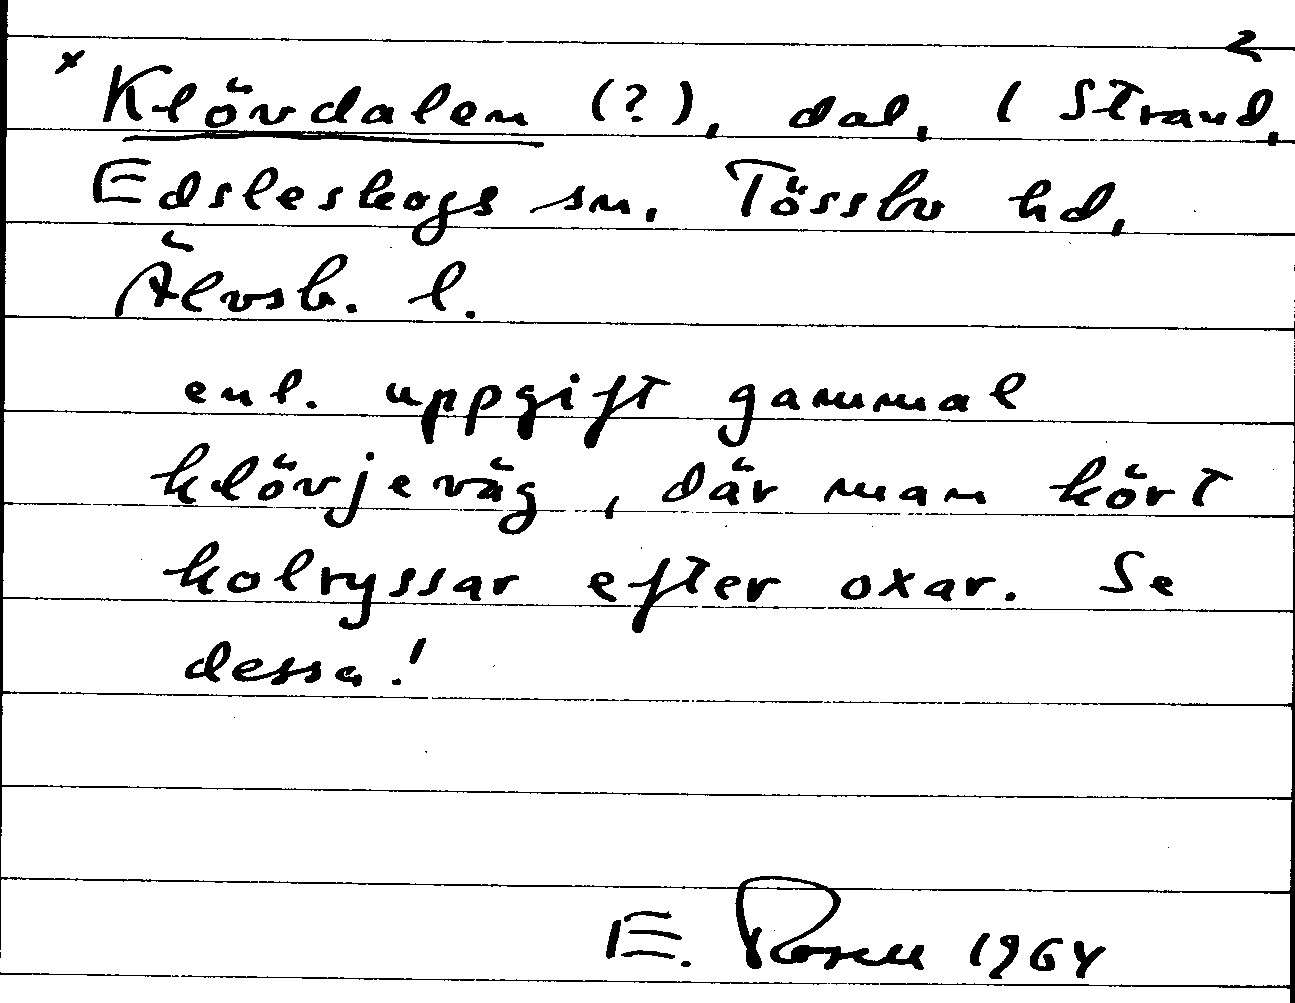 2
x Klövdalen (?), dal, ( Strand,
Edsleskogs sn, Tössbo hd,
Älvsb. l.
enl. uppgift gammal
klövjeväg, där man kört
kolryssar efter oxar. Se
dessa!
E. Rosell 1964